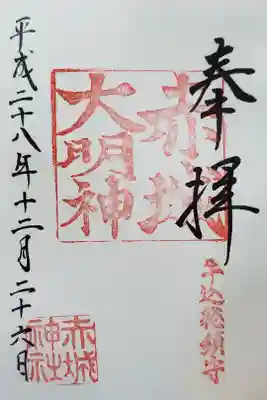 奉拝
牛込総鎮守
赤城
大明神
赤城
神社
平成二十八年十二月二十六日